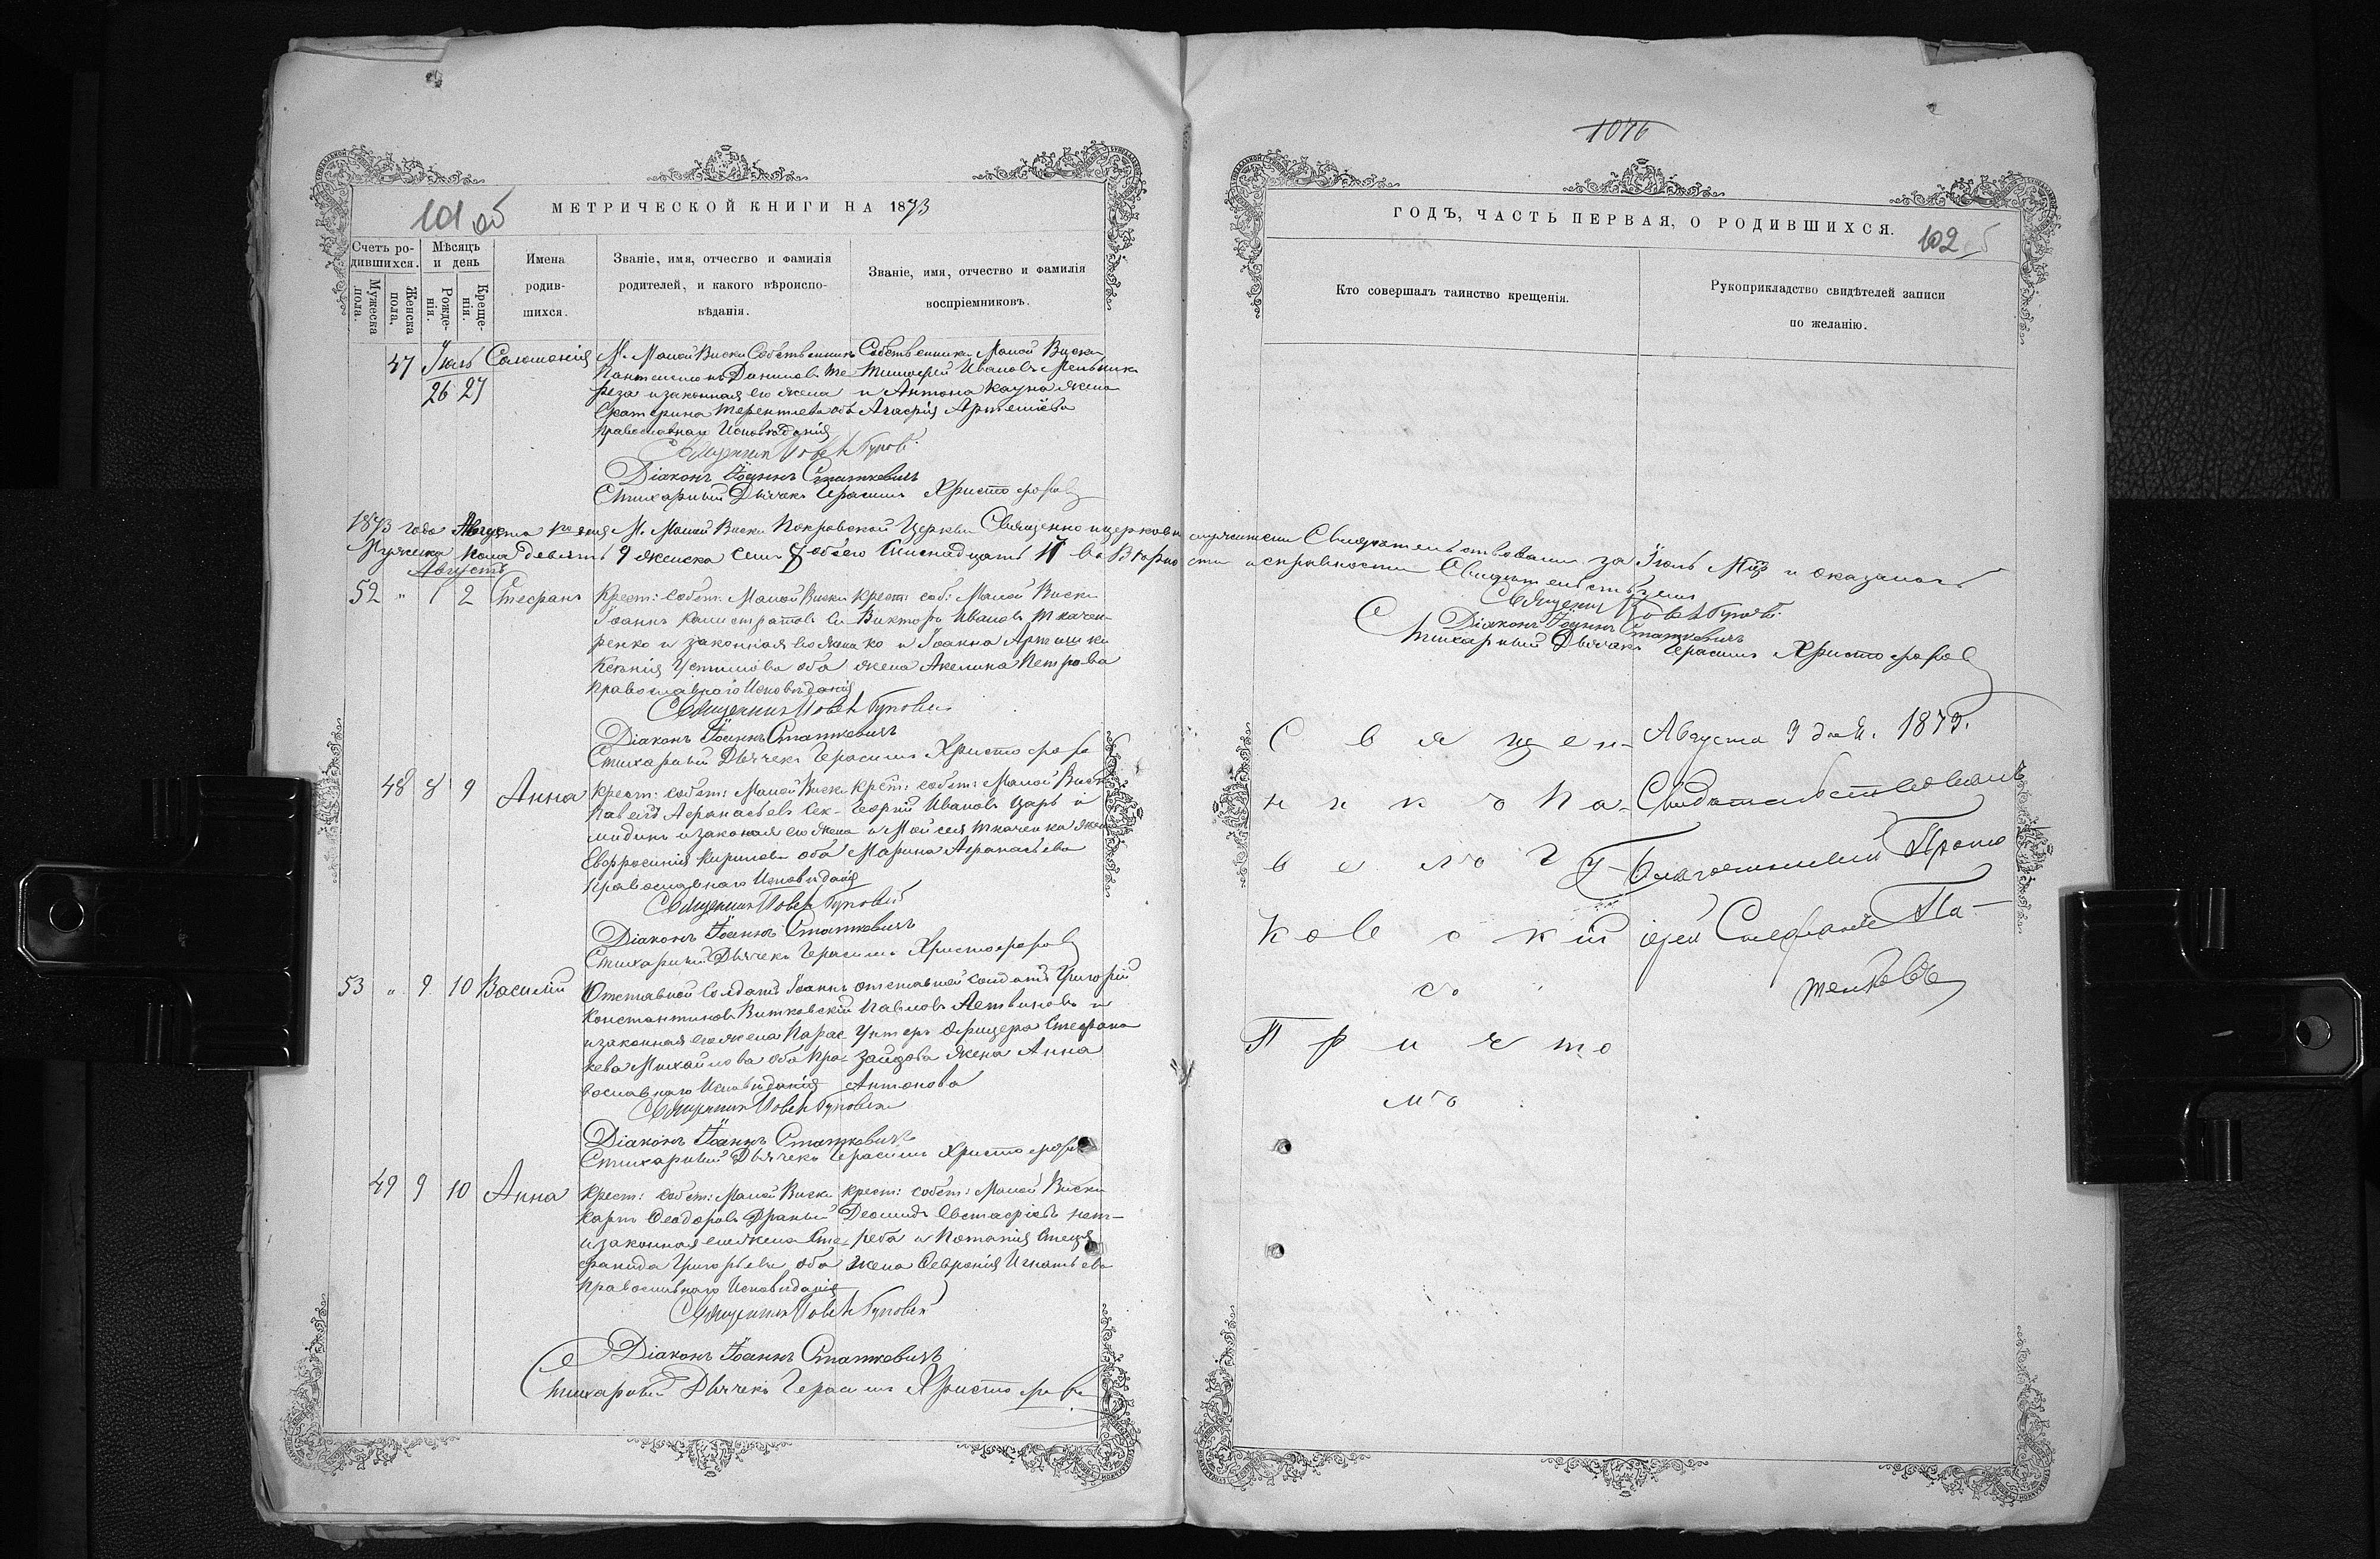 101 об
МЕТРИЧЕСКОЙ КНИГИ НА 1873
Счетъ ро-
дившихся.
Мужеска пола.
Женска пола.
Мѣсяцъ
и день
Рожде-
нія.
Креще-
нія.
Имена
родив-
шихся.
Званіе, имя, отчество и фамилія
родителей, и какого вѣроиспо-
вѣданія.
Званіе, имя, отчество и фамилія
воспріемниковъ.
47 Іюль 26 27 Саломонія
М. Малой Виски Собственникъ
Пантелеимонъ Даниловъ Те-
реза и законная его жена
Екатерина Терентіева оба
православнаго Исповѣданія
Собственники Малой Виски
Тимофей Ивановъ Мельникъ
и Антона Кауна жена
Агафія Артеміева
Священникъ Павелъ
Діаконъ Іоаннъ Статкевичъ
Стихарный Дьячекъ Герасимъ Христофоровъ
1873 года Августа 1го дня М. Малой Виски Покровской Церкви Священно и церковно служители Свидѣтельствовали за Іюль Мцъ и оказалось
Мужеска пола девять 9 женска семь 8 обоего 17 въ Вѣрности и справности Свидѣтельствуемъ
Священникъ Павелъ
Діаконъ Іоаннъ Статкевичъ
Стихарный Дьячекъ Герасимъ Христофоровъ
Августъ
52 " 1 2 Стефанъ
Крест: собст: Малой Виски
Іоаннъ Калистратовъ
ренко и законная его жена
Ксенія Устимова оба
православнаго Исповѣданія
Крест: соб: Малой Виски
Викторъ Ивановъ Ткачен-
ко и Іоанна
жена Акелина Петрова
Священникъ Павелъ
Діаконъ Іоаннъ Статкевичъ
Стихарный Дьячекъ Герасимъ Христофоровъ
48 8 9 Анна
Крест: собст: Малой Виски
Павелъ Афанасьевъ
и законная его жена
Евфросинія Кирилова оба
православнаго Исповѣданія
Крест: собст: Малой Виски
Георгій Ивановъ Царь и
Моисея Ткаченка жена
Марина Афанасьева
Священникъ Павелъ
Діаконъ Іоаннъ Статкевичъ
Стихарный Дьячекъ Герасимъ Христофоровъ
53 " 9 10 Василій
Отставной Солдатъ Іоаннъ
Константиновъ Витковскій
и законная его жена Парас-
кева Михайлова оба пра-
вославнаго Исповѣданія
отставной солдатъ Григорій
Павловъ Летвиновъ и
Унтеръ Офицера Стефана
жена Анна
Антонова
Священникъ Павелъ
Діаконъ Іоаннъ Статкевичъ
Стихарный Дьячекъ Герасимъ Христофоровъ
49 9 10 Анна
Крест: собст: Малой Виски
Карпъ Феодоровъ Драный
и законная его жена Сте-
фанида Григорьева оба
православнаго Исповѣданія
Крест: собст: Малой Виски
Деомидъ Евстафіевъ
реба и Потапія
жена Февронія Игнатьева
Священникъ Павелъ
Діаконъ Іоаннъ Статкевичъ
Стихарный Дьячекъ Герасимъ Христофоровъ
1076
ГОДЪ, ЧАСТЬ ПЕРВАЯ, О РОДИВШИХСЯ.
102
Кто совершалъ таинство крещенія.
Рукоприкладство свидѣтелей записи
по желанію.
Священ-
никъ Па-
велъ Гу-
ковскій
съ
Причто
мъ
Августа 3 дня. 1873.
Свидѣтельствовалъ
Благочинный Прото
іерей Стефанъ Па-